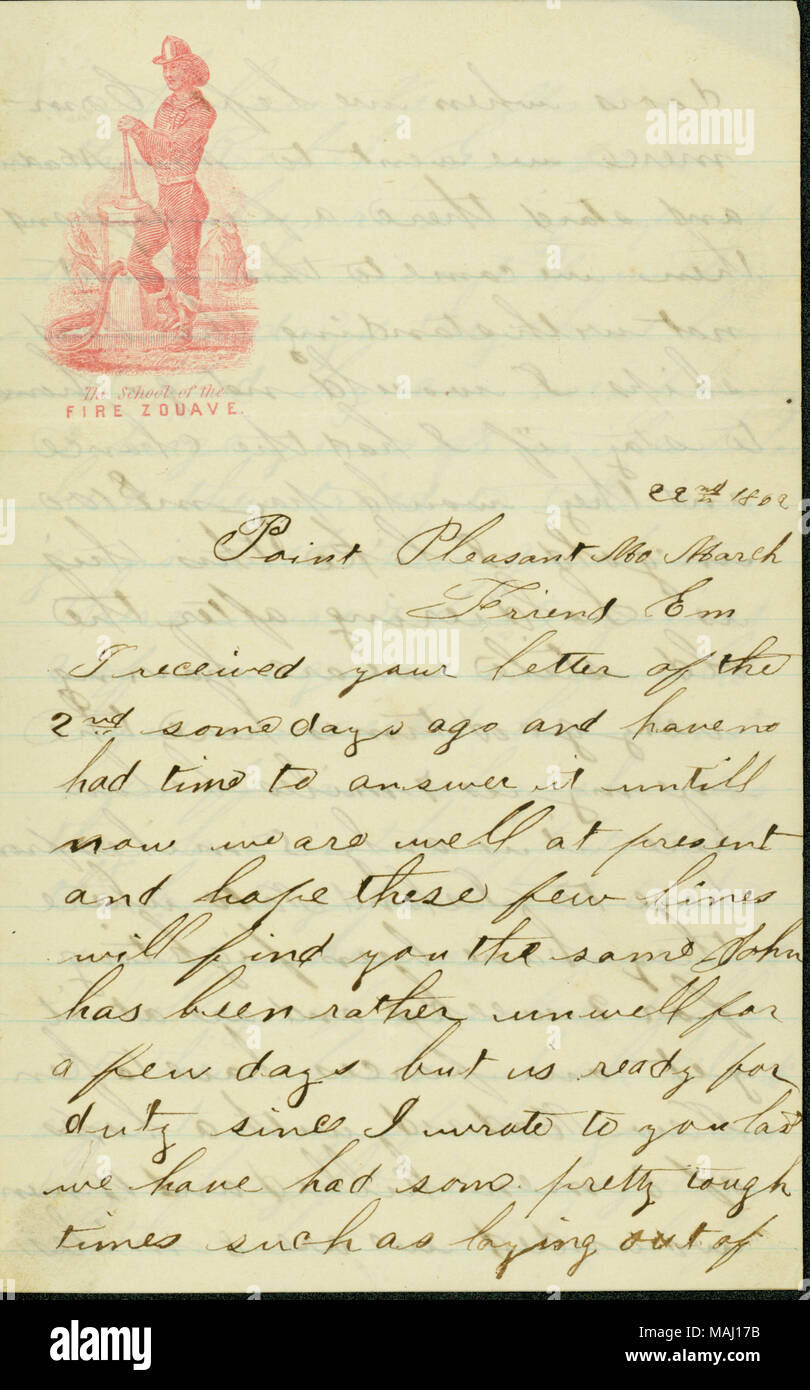 The School of the
FIRE ZOUAVE.
22nd 1862
Point Pleasant Mo March
Friend Em
I received your letter of the
2nd some days ago and have no
had time to answer it untill
now we are well at present
and hope these few lines
will find you the same John
has been rather unwell for
a few days but is ready for
duty since I wrote to you last
we have had some pretty tough
times such as laying out of
alamy
Image ID: MAJ17B
www.alamy.com